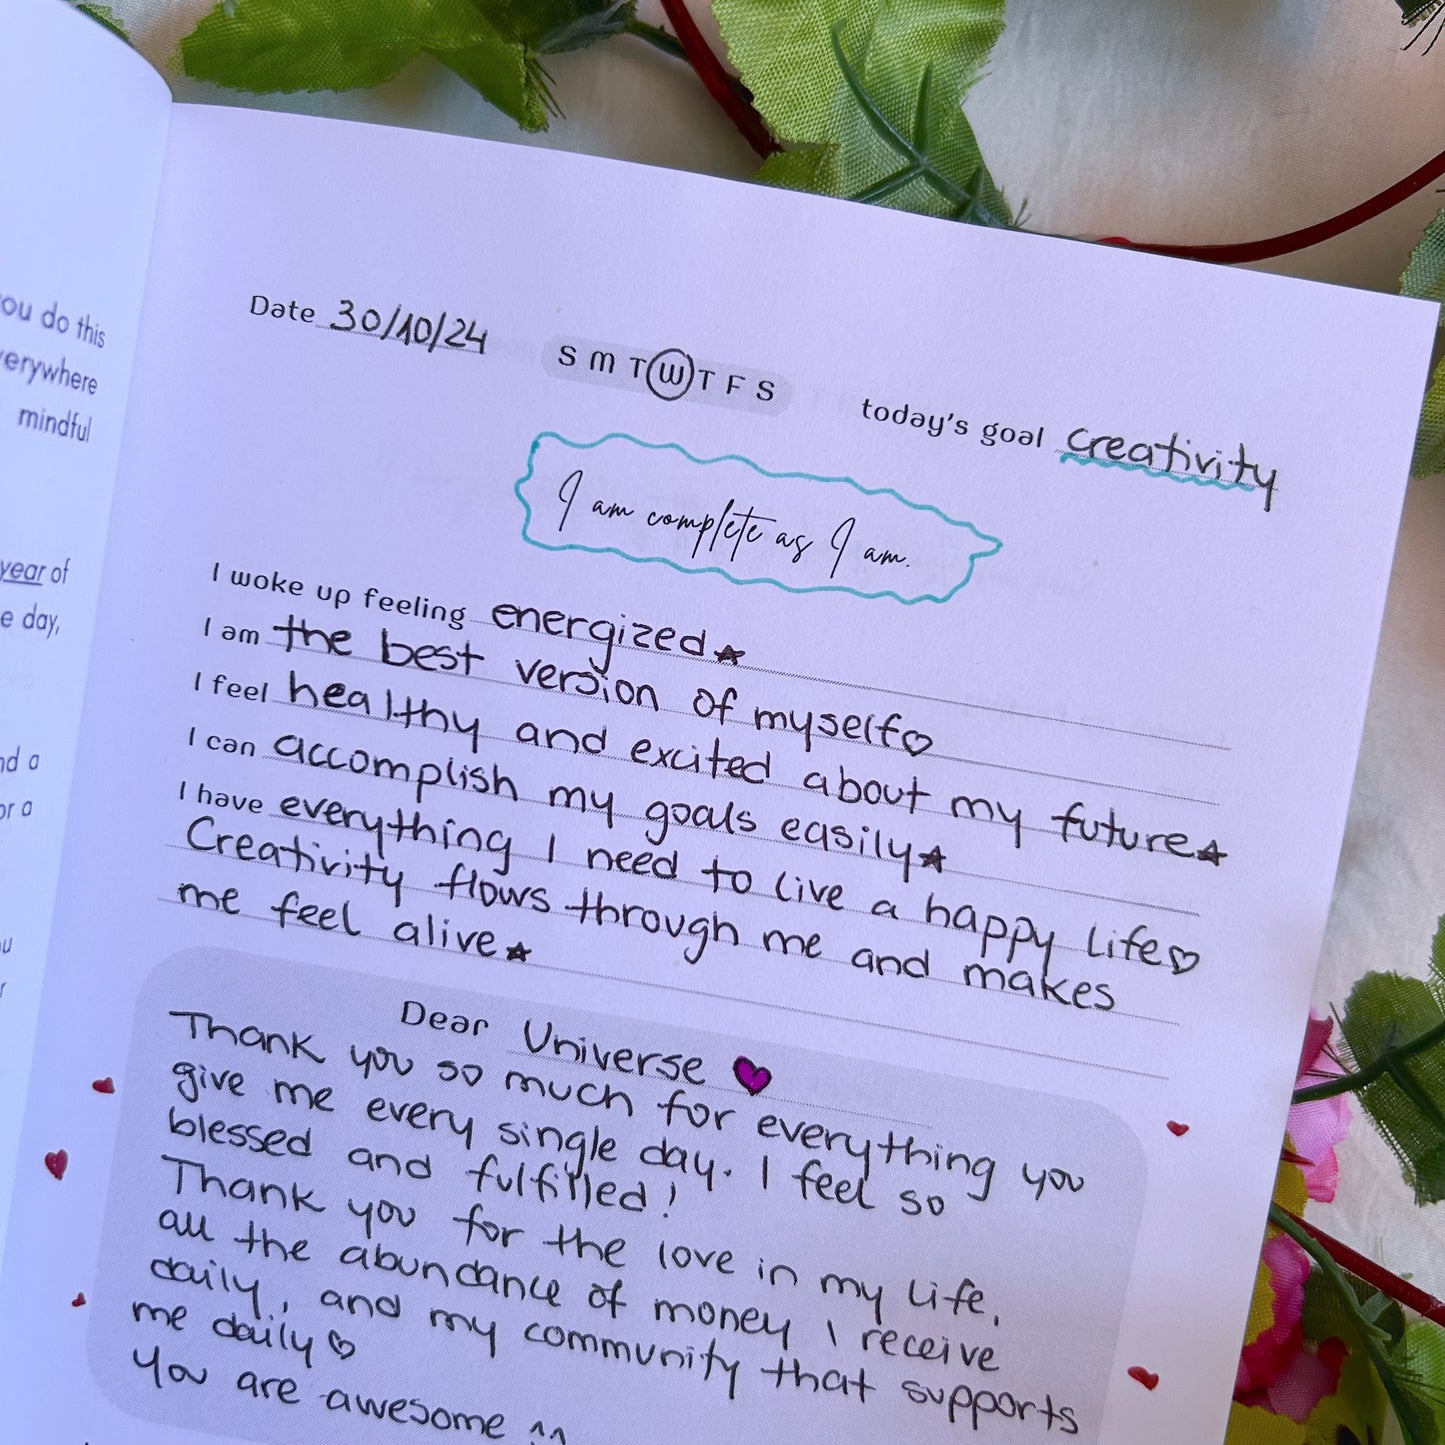 ou do this
erywhere
mindful
year of
e day,
nd a
or a
u
r
Date 30/10/24
S M T W T F S
today's goal creativity
I am complete as I am.
I woke up feeling energized★
I am the best version of myself♡
I feel healthy and excited about my future★
I can accomplish my goals easily★
I have everything I need to live a happy life♡
Creativity flows through me and makes
me feel alive★
Dear Universe ♥
Thank you so much for everything you
give me every single day. I feel so
blessed and fulfilled!
Thank you for the love in my life,
all the abundance of money I receive
daily, and my community that supports
me daily♡
You are awesome ^^